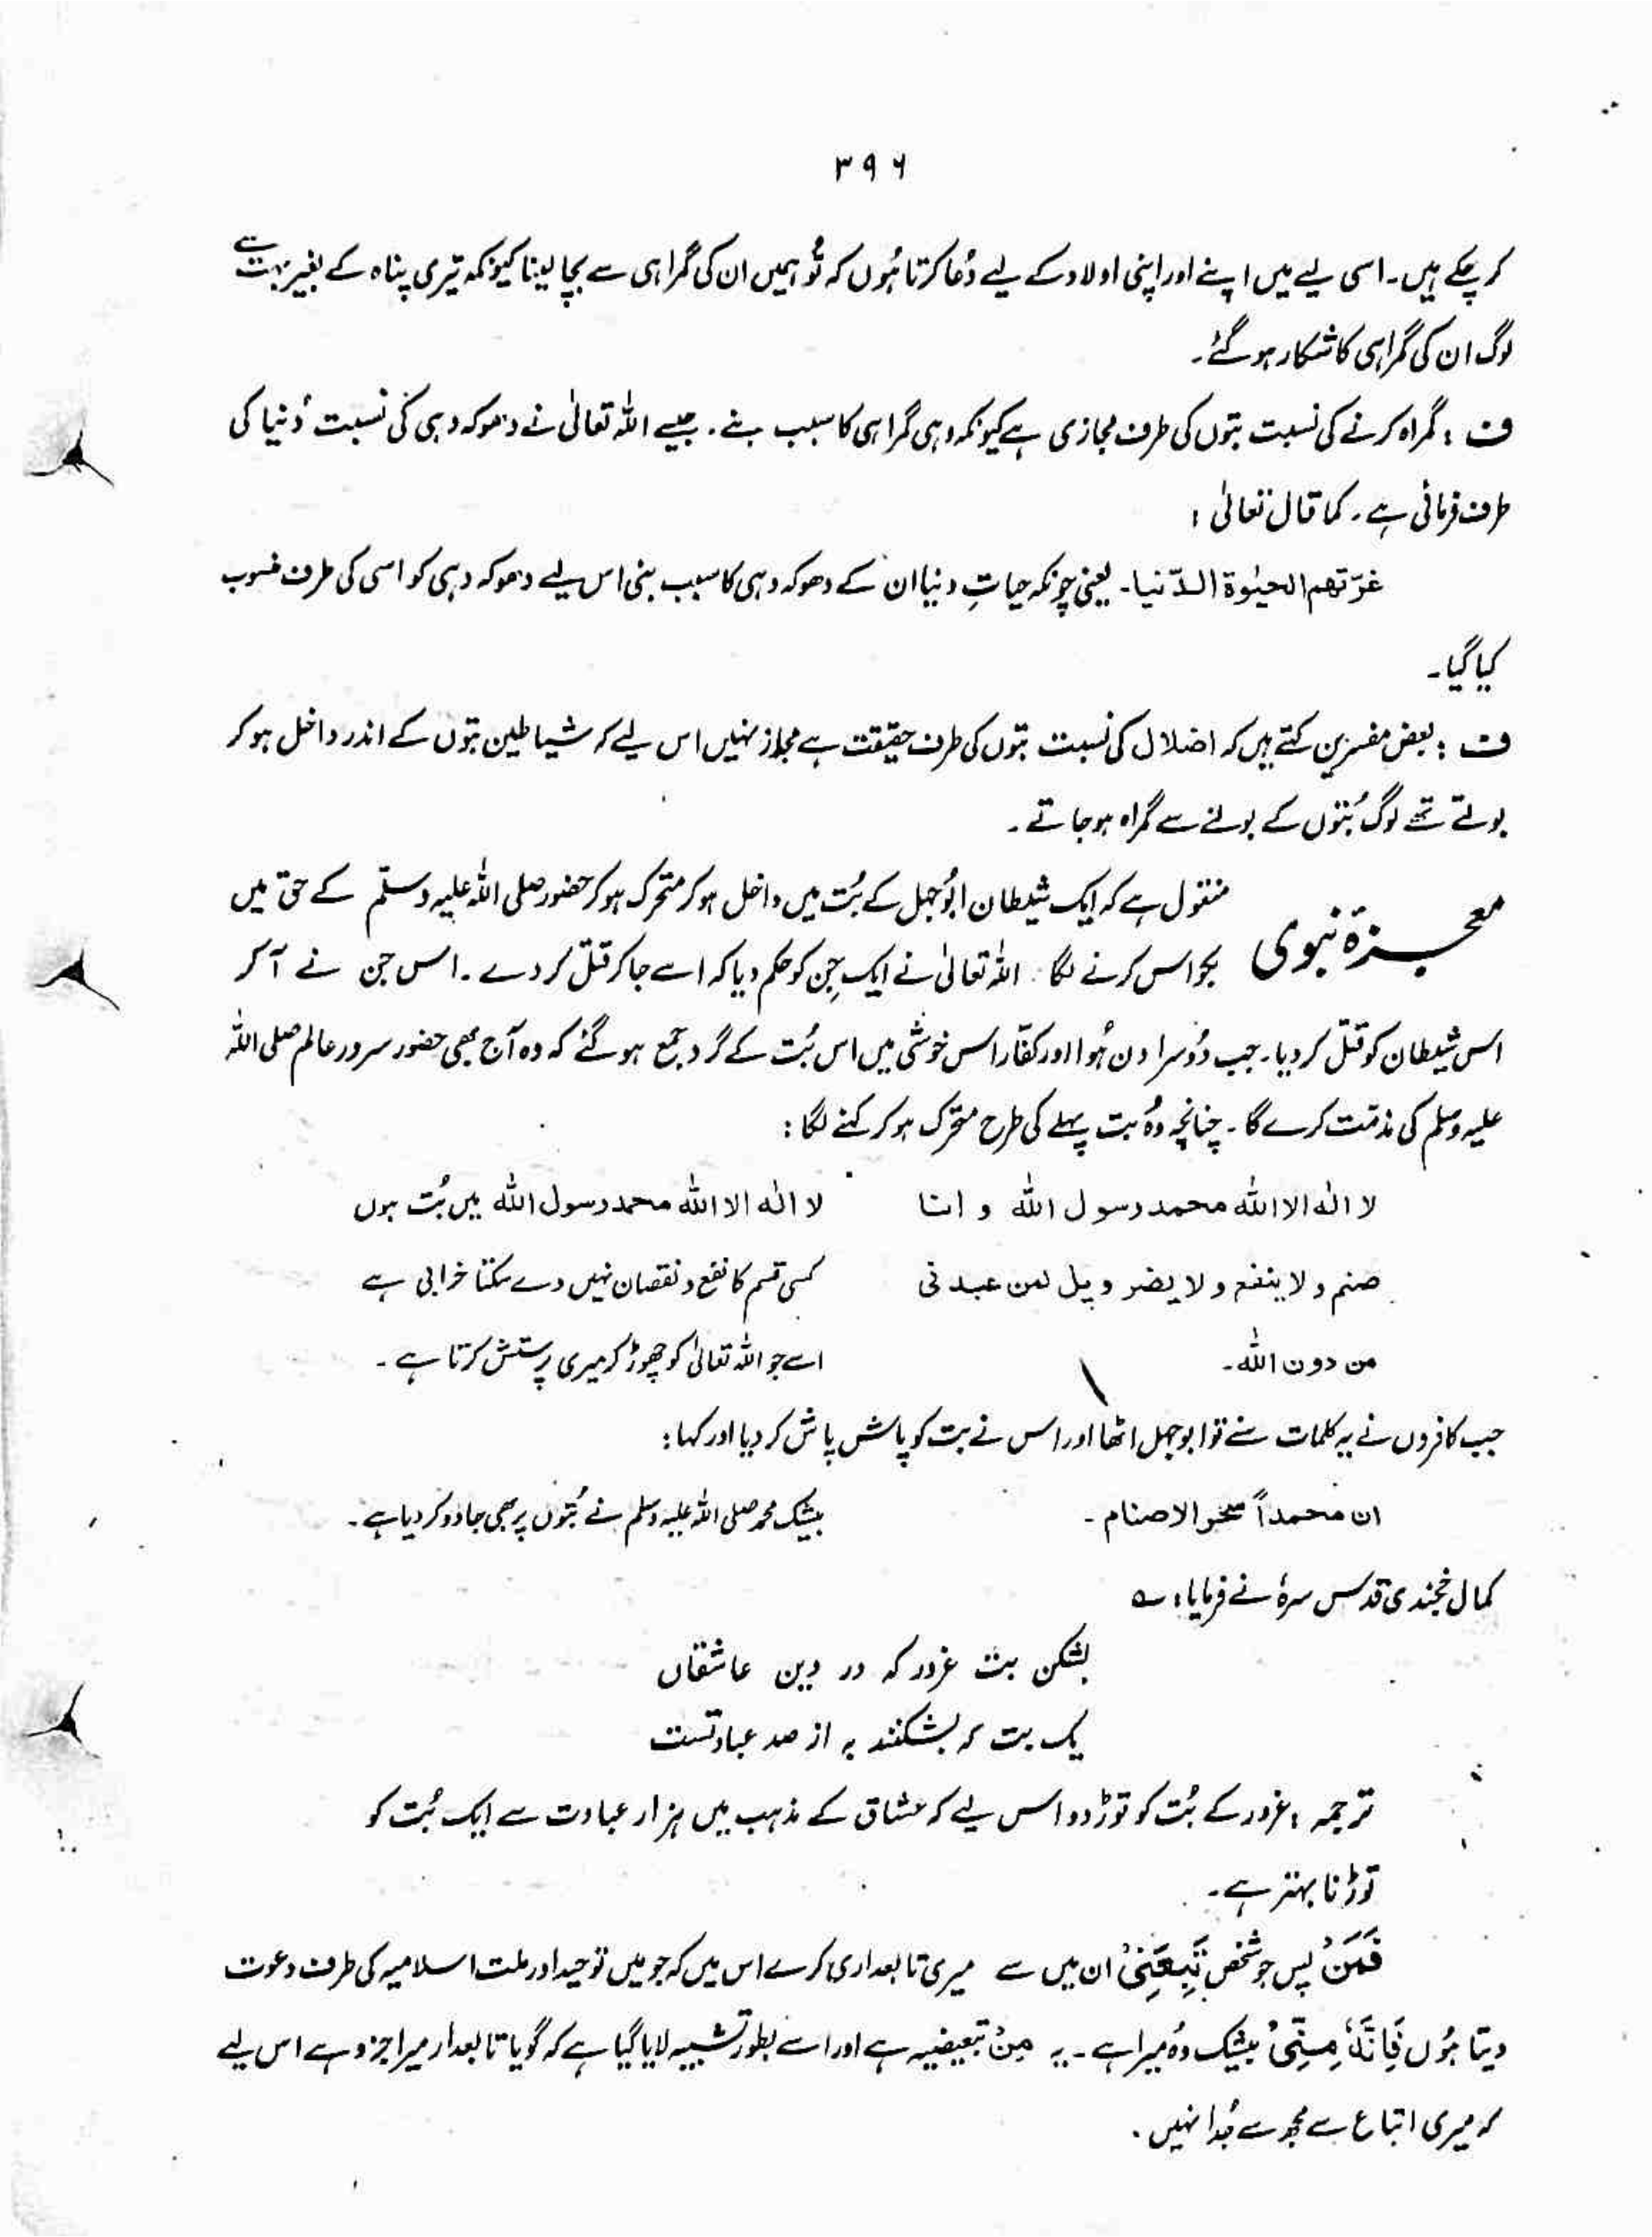 ۳۹۶
کر چکے ہیں۔ اسی لیے میں اپنے اور اپنی اولاد کے لیے دُعا کرتا ہُوں کہ تُو ہمیں ان کی گمراہی سے بچا لینا کیونکہ تیری پناہ کے بغیر بہت سے
لوگ ان کی گمراہی کا شکار ہو گئے۔
ف : گمراہ کرنے کی نسبت بتوں کی طرف مجازی ہے کیونکہ وہی گمراہی کا سبب بنے۔ جیسے اللہ تعالیٰ نے دھوکہ دہی کی نسبت دُنیا کی
طرف فرمائی ہے۔ کما قال تعالیٰ :
غرّتهم الحیٰوة الدّنیا۔ یعنی چونکہ حیاتِ دنیا ان کے دھوکہ دہی کا سبب بنی اس لیے دھوکہ دہی کو اسی کی طرف منسوب
کیا گیا۔
ف : بعض مفسرین کہتے ہیں کہ اضلال کی نسبت بتوں کی طرف حقیقت ہے مجاز نہیں اس لیے کہ شیاطین بتوں کے اندر داخل ہو کر
بولتے تھے لوگ بُتوں کے بولنے سے گمراہ ہو جاتے۔
معجزۂ نبوی
منقول ہے کہ ایک شیطان ابُوجہل کے بُت میں داخل ہو کر متحرک ہو کر حضور صلی اللہ علیہ وسلّم کے حق میں
بکواس کرنے لگا۔ اللہ تعالیٰ نے ایک جِن کو حکم دیا کہ اسے جا کر قتل کر دے۔ اس جن نے آ کر
اس شیطان کو قتل کر دیا۔ جب دُوسرا دن ہُوا اور کفّار اس خوشی میں اس بُت کے گرد جمع ہو گئے کہ وہ آج بھی حضور سرور عالم صلی اللہ
علیہ وسلم کی مذمّت کرے گا۔ چنانچہ وُہ بت پہلے کی طرح متحرک ہو کر کہنے لگا :
لا الٰه الا الله محمد رسول الله و انا     لا الٰہ الا اللہ محمد رسول اللہ میں بُت ہوں
صنم و لا ینفع و لا یضر ویل لمن عبدنی     کسی قسم کا نفع و نقصان نہیں دے سکتا خرابی ہے
من دون الله۔     اسے جو اللہ تعالیٰ کو چھوڑ کر میری پرستش کرتا ہے۔
جب کافروں نے یہ کلمات سنے تو ابوجہل اٹھا اور اس نے بت کو پاش پاش کر دیا اور کہا :
ان محمداً سحر الاصنام۔     بیشک محمد صلی اللہ علیہ وسلم نے بُتوں پر بھی جادو کر دیا ہے۔
کمال خجندی قدس سرہٗ نے فرمایا : ؎
بشکن بت غرور کہ در دین عاشقاں
یک بت کہ بشکنند بہ از صد عبادتست
ترجمہ : غرور کے بُت کو توڑ دو اس لیے کہ عشاق کے مذہب میں ہزار عبادت سے ایک بُت کو
توڑنا بہتر ہے۔
فَمَنْ پس جو شخص تَبِعَنِیْ ان میں سے میری تابعداری کرے اس میں کہ جو میں توحید اور ملت اسلامیہ کی طرف دعوت
دیتا ہُوں فَاِنَّهٗ مِنِّیْ بیشک وُہ میرا ہے۔ یہ مِنْ تبعیضیہ ہے اور اسے بطور تشبیہ لایا گیا ہے کہ گویا تابعدار میرا جزو ہے اس لیے
کہ میری اتباع سے مجھ سے جُدا نہیں۔